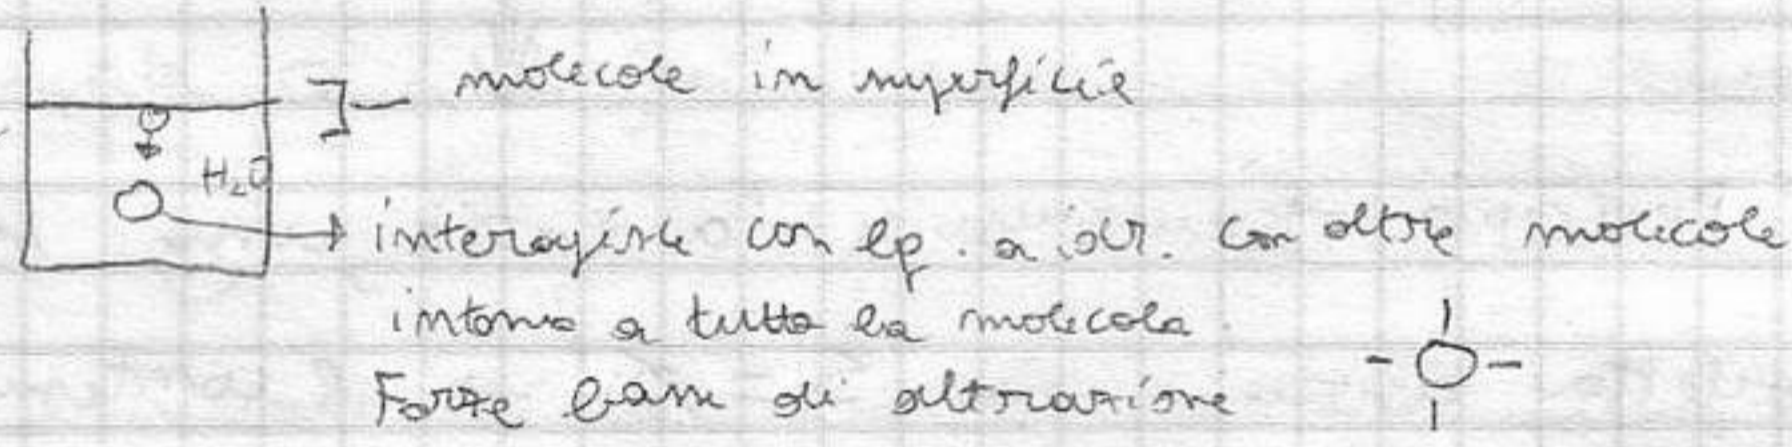 molecole in superficie
H₂O
interagisce con lg. a idr. con altre molecole
intorno a tutta la molecola.
Forze di attrazione